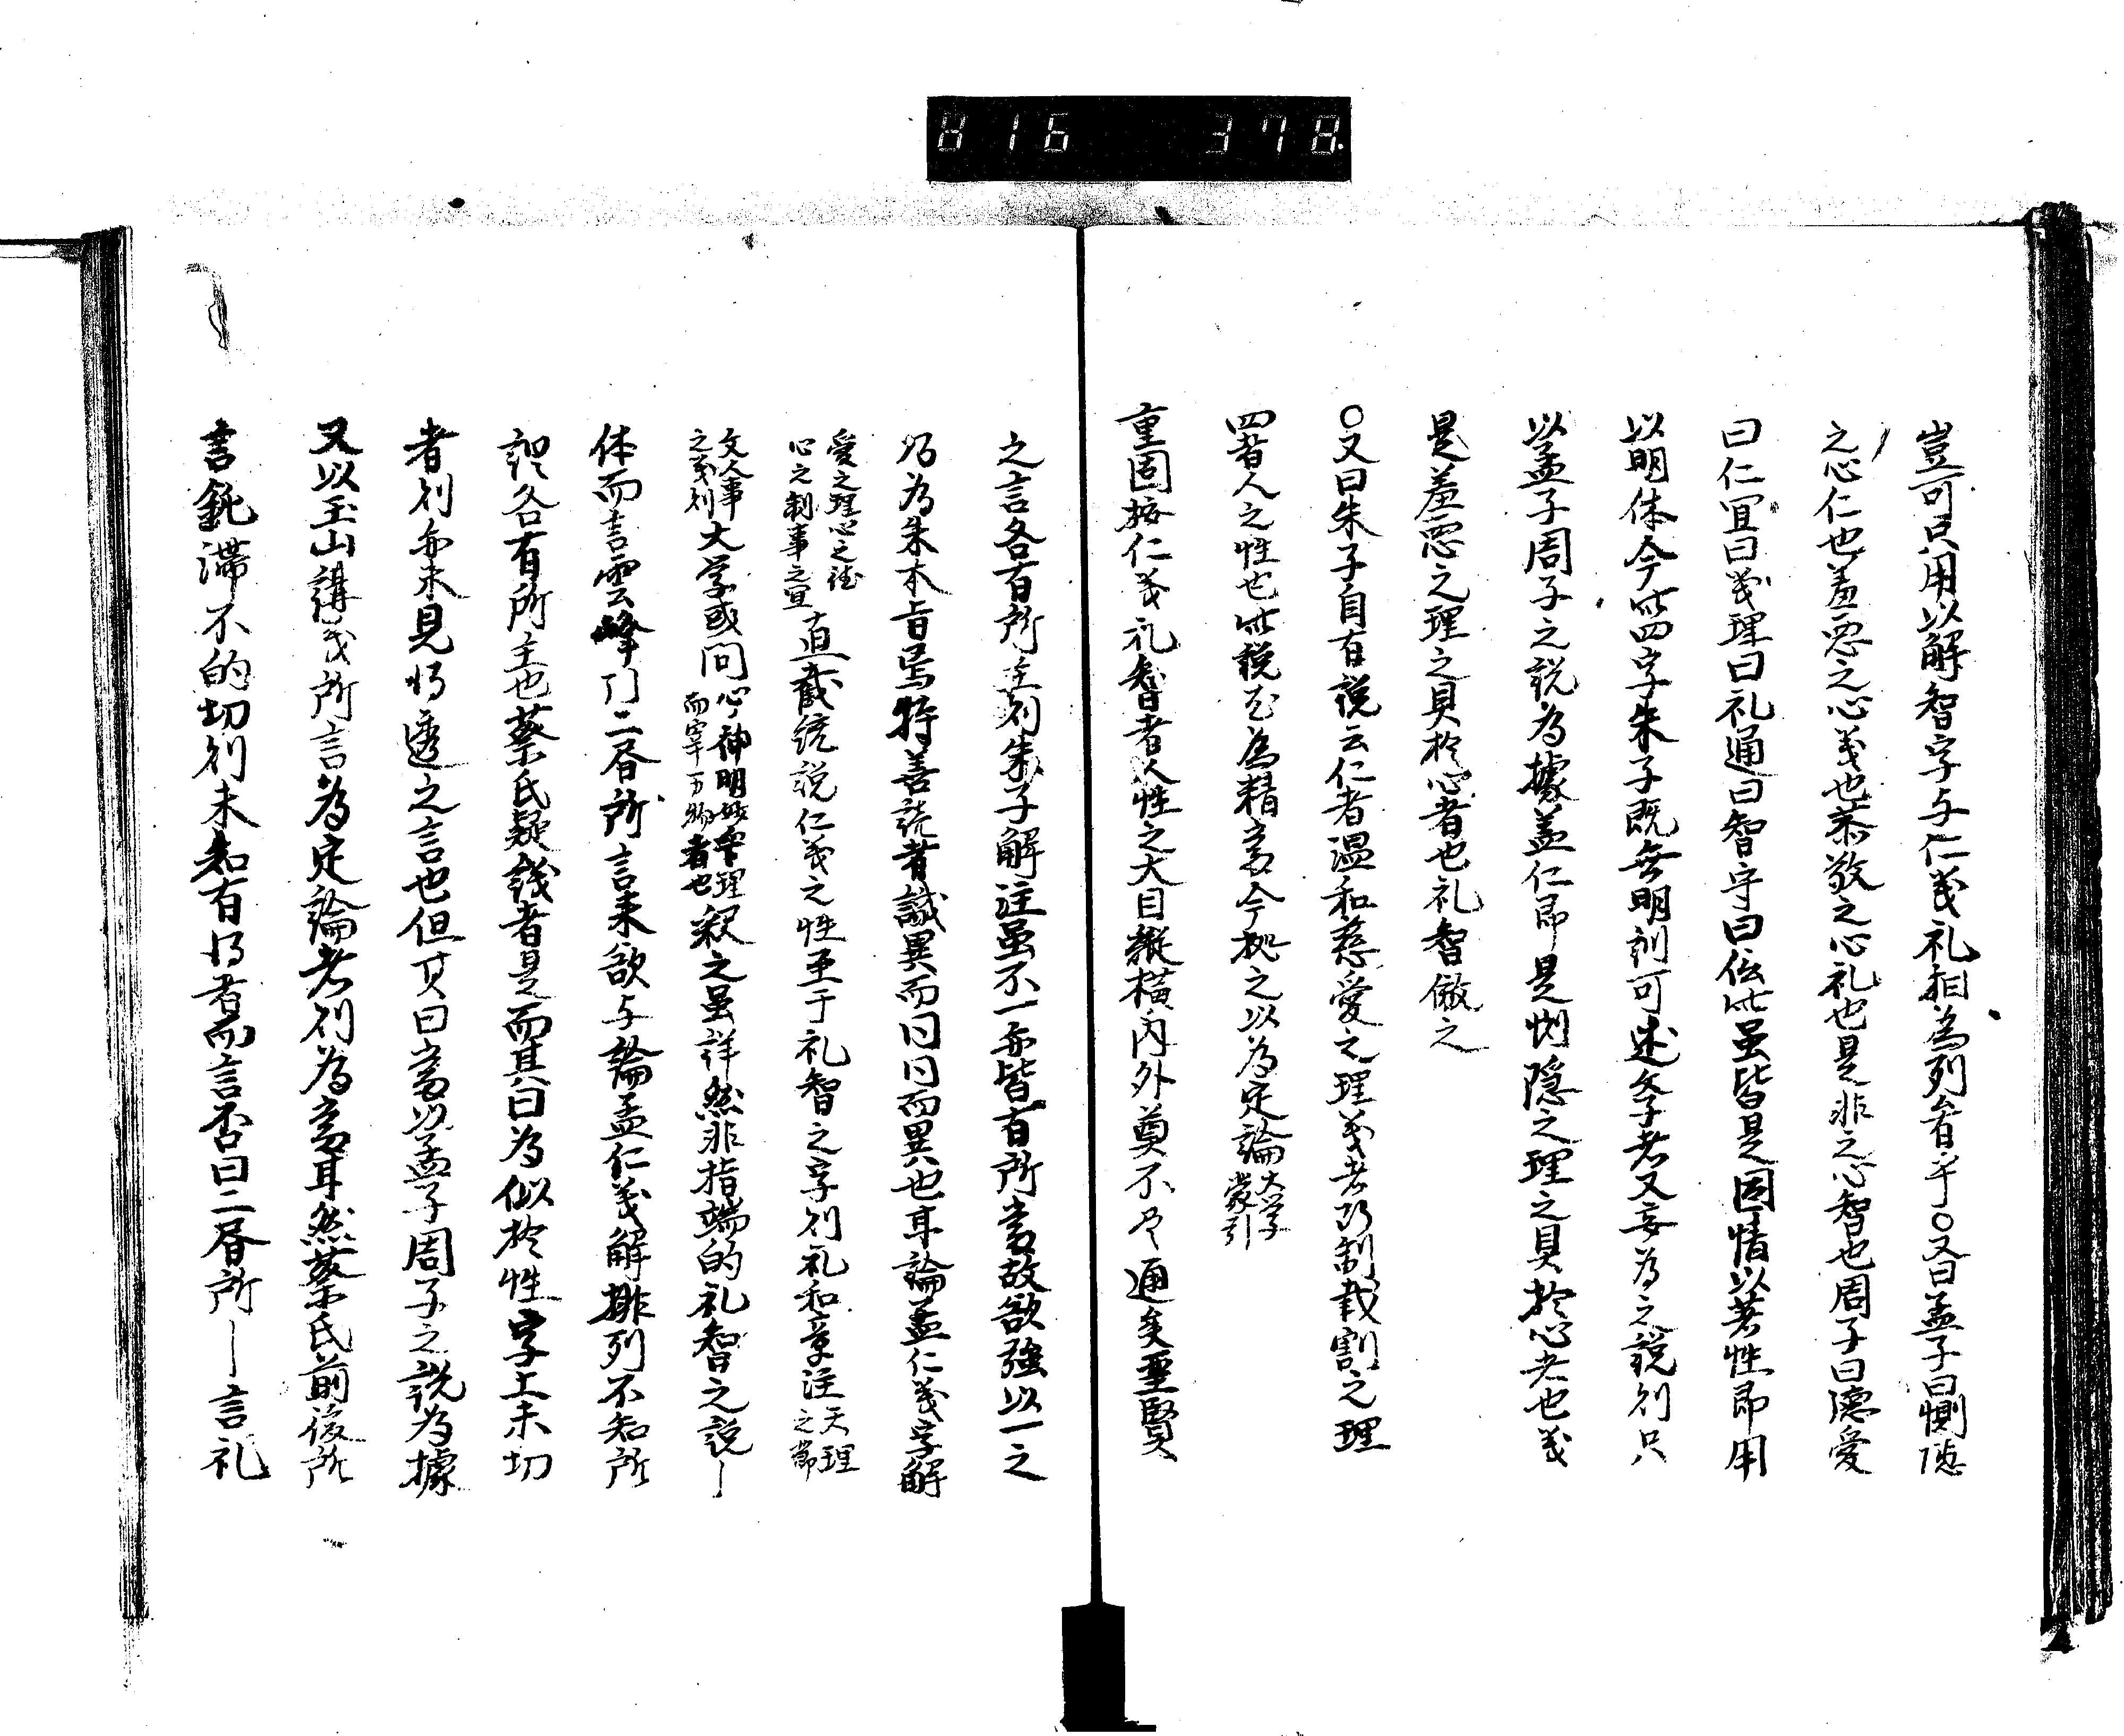 816 378
豈可只用以解智字与仁義礼相為列者乎○又曰孟子曰惻隠
之心仁也羞悪之心義也恭敬之心礼也是非之心智也周子曰徳愛
曰仁宜曰義理曰礼通曰智守曰信此虽皆是因情以著性即用
以明体今此四字朱子既無明訓可述学者又妄為之説則只
以孟子周子之説為據盖仁即是惻隠之理之具於心者也義
是羞悪之理之具於心者也礼智倣之
○又曰朱子自有説云仁者温和慈愛之理義者断制裁割之理
四者人之性也此説尤為精密今拠之以為定論大学蒙引
重固按仁義礼智者人性之大目縦横内外莫不尽通矣聖賢
之言各有所主則朱子解注虽不一亦皆有所當故欲強以一之
乃為朱本旨焉特善読者識異而同同而異也耳論孟仁義字解
愛之理心之徳
心之制事之宜
直截統説仁義之性至于礼智之字則礼和章注天理之節
文人事之義則大学或問心之神明妙衆理而宰万物者也釈之虽詳然非指端的礼智之説
体而言雲峰門二君所言来欲与論孟仁義解排列不知所
説各有所主也蔡氏疑錢者是而其曰為似於性字上未切
者則亦未見得透之言也但其曰當以孟子周子之説為據
又以玉山講義所言為定論者則為當耳然蔡氏前後所
言鈍滞不的切則未知有得者而言否曰二君所言礼